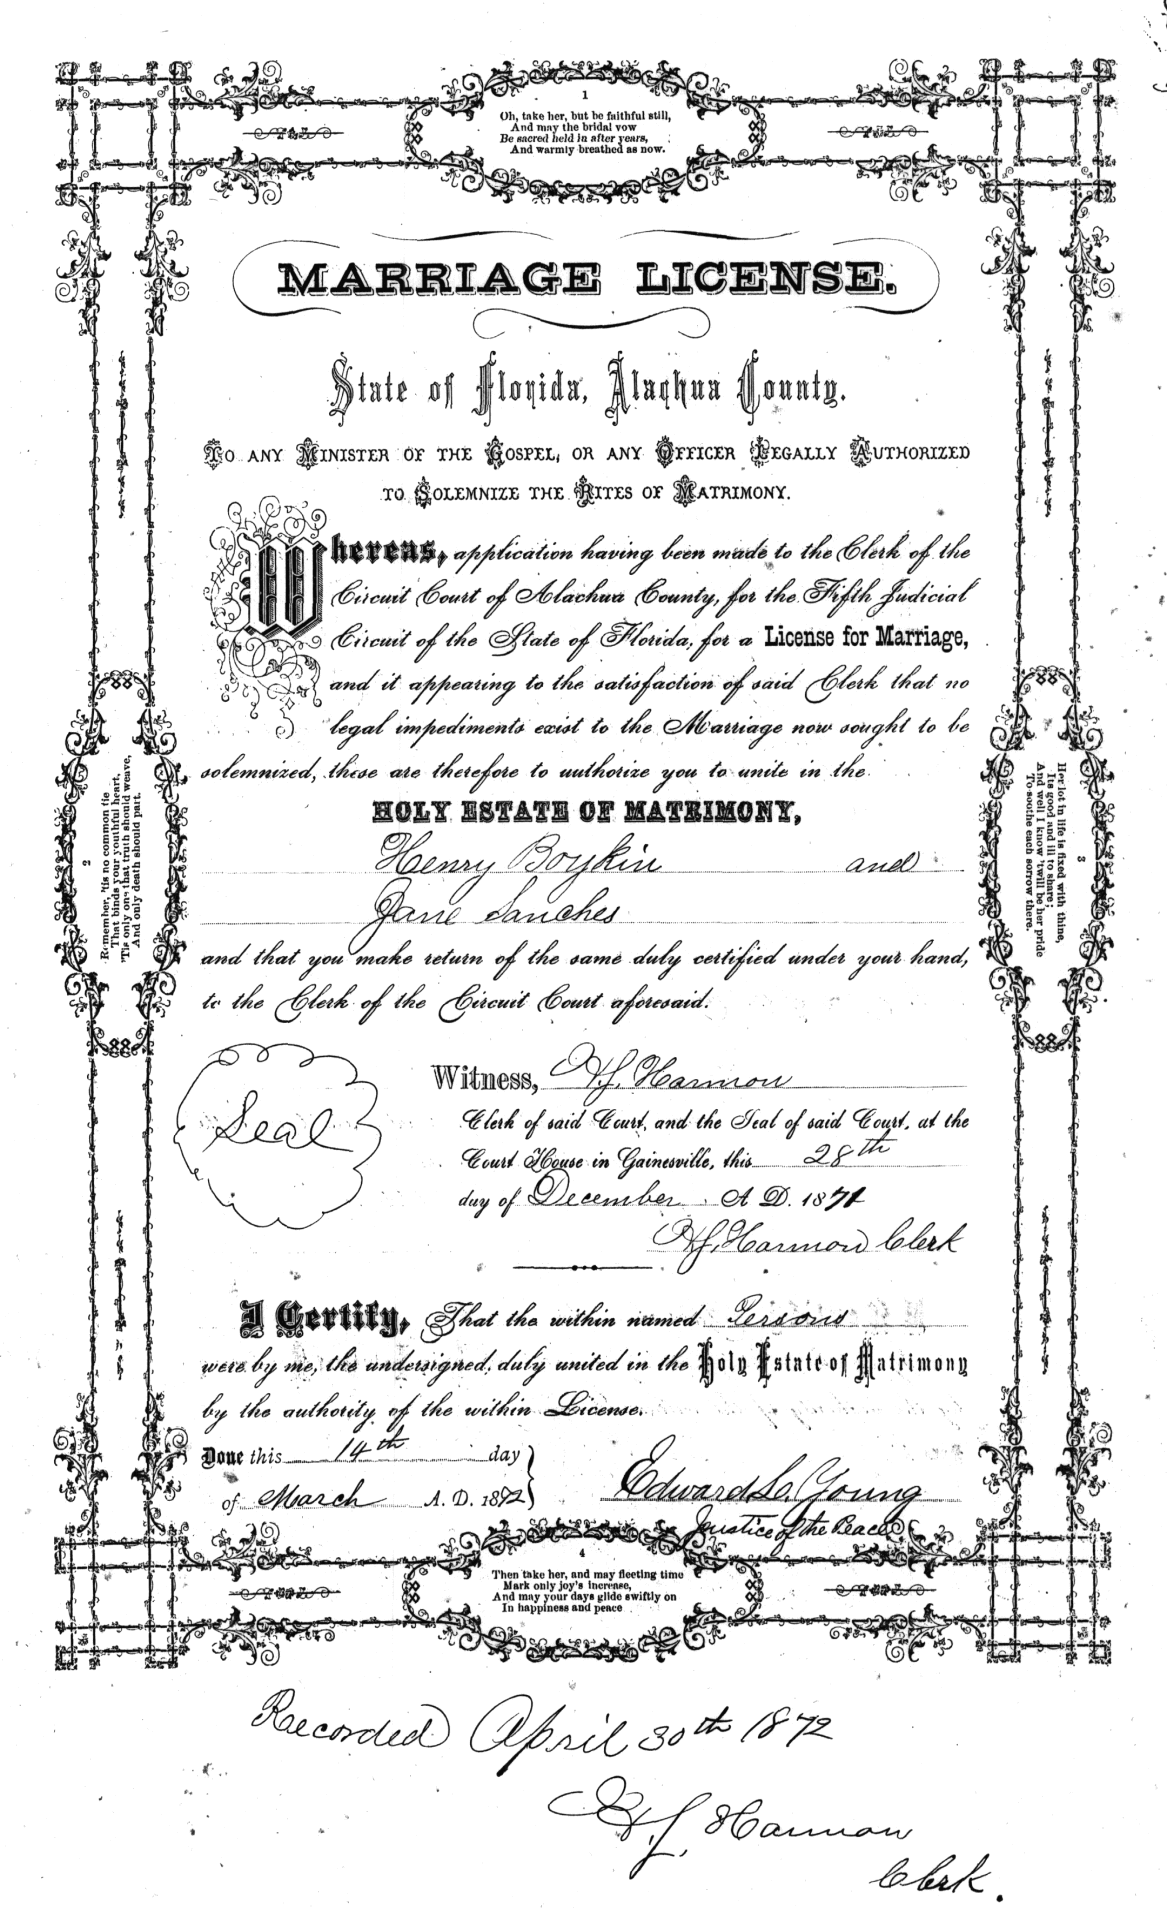 1
Oh, take her, but be faithful still,
And may the bridal vow
Be sacred held in after years,
And warmly breathed as now.
MARRIAGE LICENSE.
State of Florida, Alachua County.
TO ANY MINISTER OF THE GOSPEL, OR ANY OFFICER LEGALLY AUTHORIZED
TO SOLEMNIZE THE RITES OF MATRIMONY.
Whereas, application having been made to the Clerk of the
Circuit Court of Alachua County, for the Fifth Judicial
Circuit of the State of Florida, for a License for Marriage,
and it appearing to the satisfaction of said Clerk that no
legal impediments exist to the Marriage now sought to be
solemnized, these are therefore to authorize you to unite in the
HOLY ESTATE OF MATRIMONY,
Henry Boykin and
Jane Sanches
and that you make return of the same duly certified under your hand,
to the Clerk of the Circuit Court aforesaid.
2
Remember, 'tis no common tie
That binds your youthful heart,
'Tis only one that truth should weave,
And only death should part.
3
Her lot in life is fixed with thine,
Its good and ill to share;
And well I know 'twill be her pride
To soothe each sorrow there.
Seal
Witness, H.J. Harmon
Clerk of said Court, and the Seal of said Court, at the
Court House in Gainesville, this 28th
day of December A D. 1871
H.J. Harmon Clerk
I Certify, That the within named Persons
were by me, the undersigned, duly united in the Holy Estate of Matrimony
by the authority of the within License.
Done this 14th day
of March A. D. 1872
Edward L. Young
Justice of the Peace
4
Then take her, and may fleeting time
Mark only joy's increase,
And may your days glide swiftly on
In happiness and peace
Recorded April 30th 1872
H.J. Harmon
Clerk.